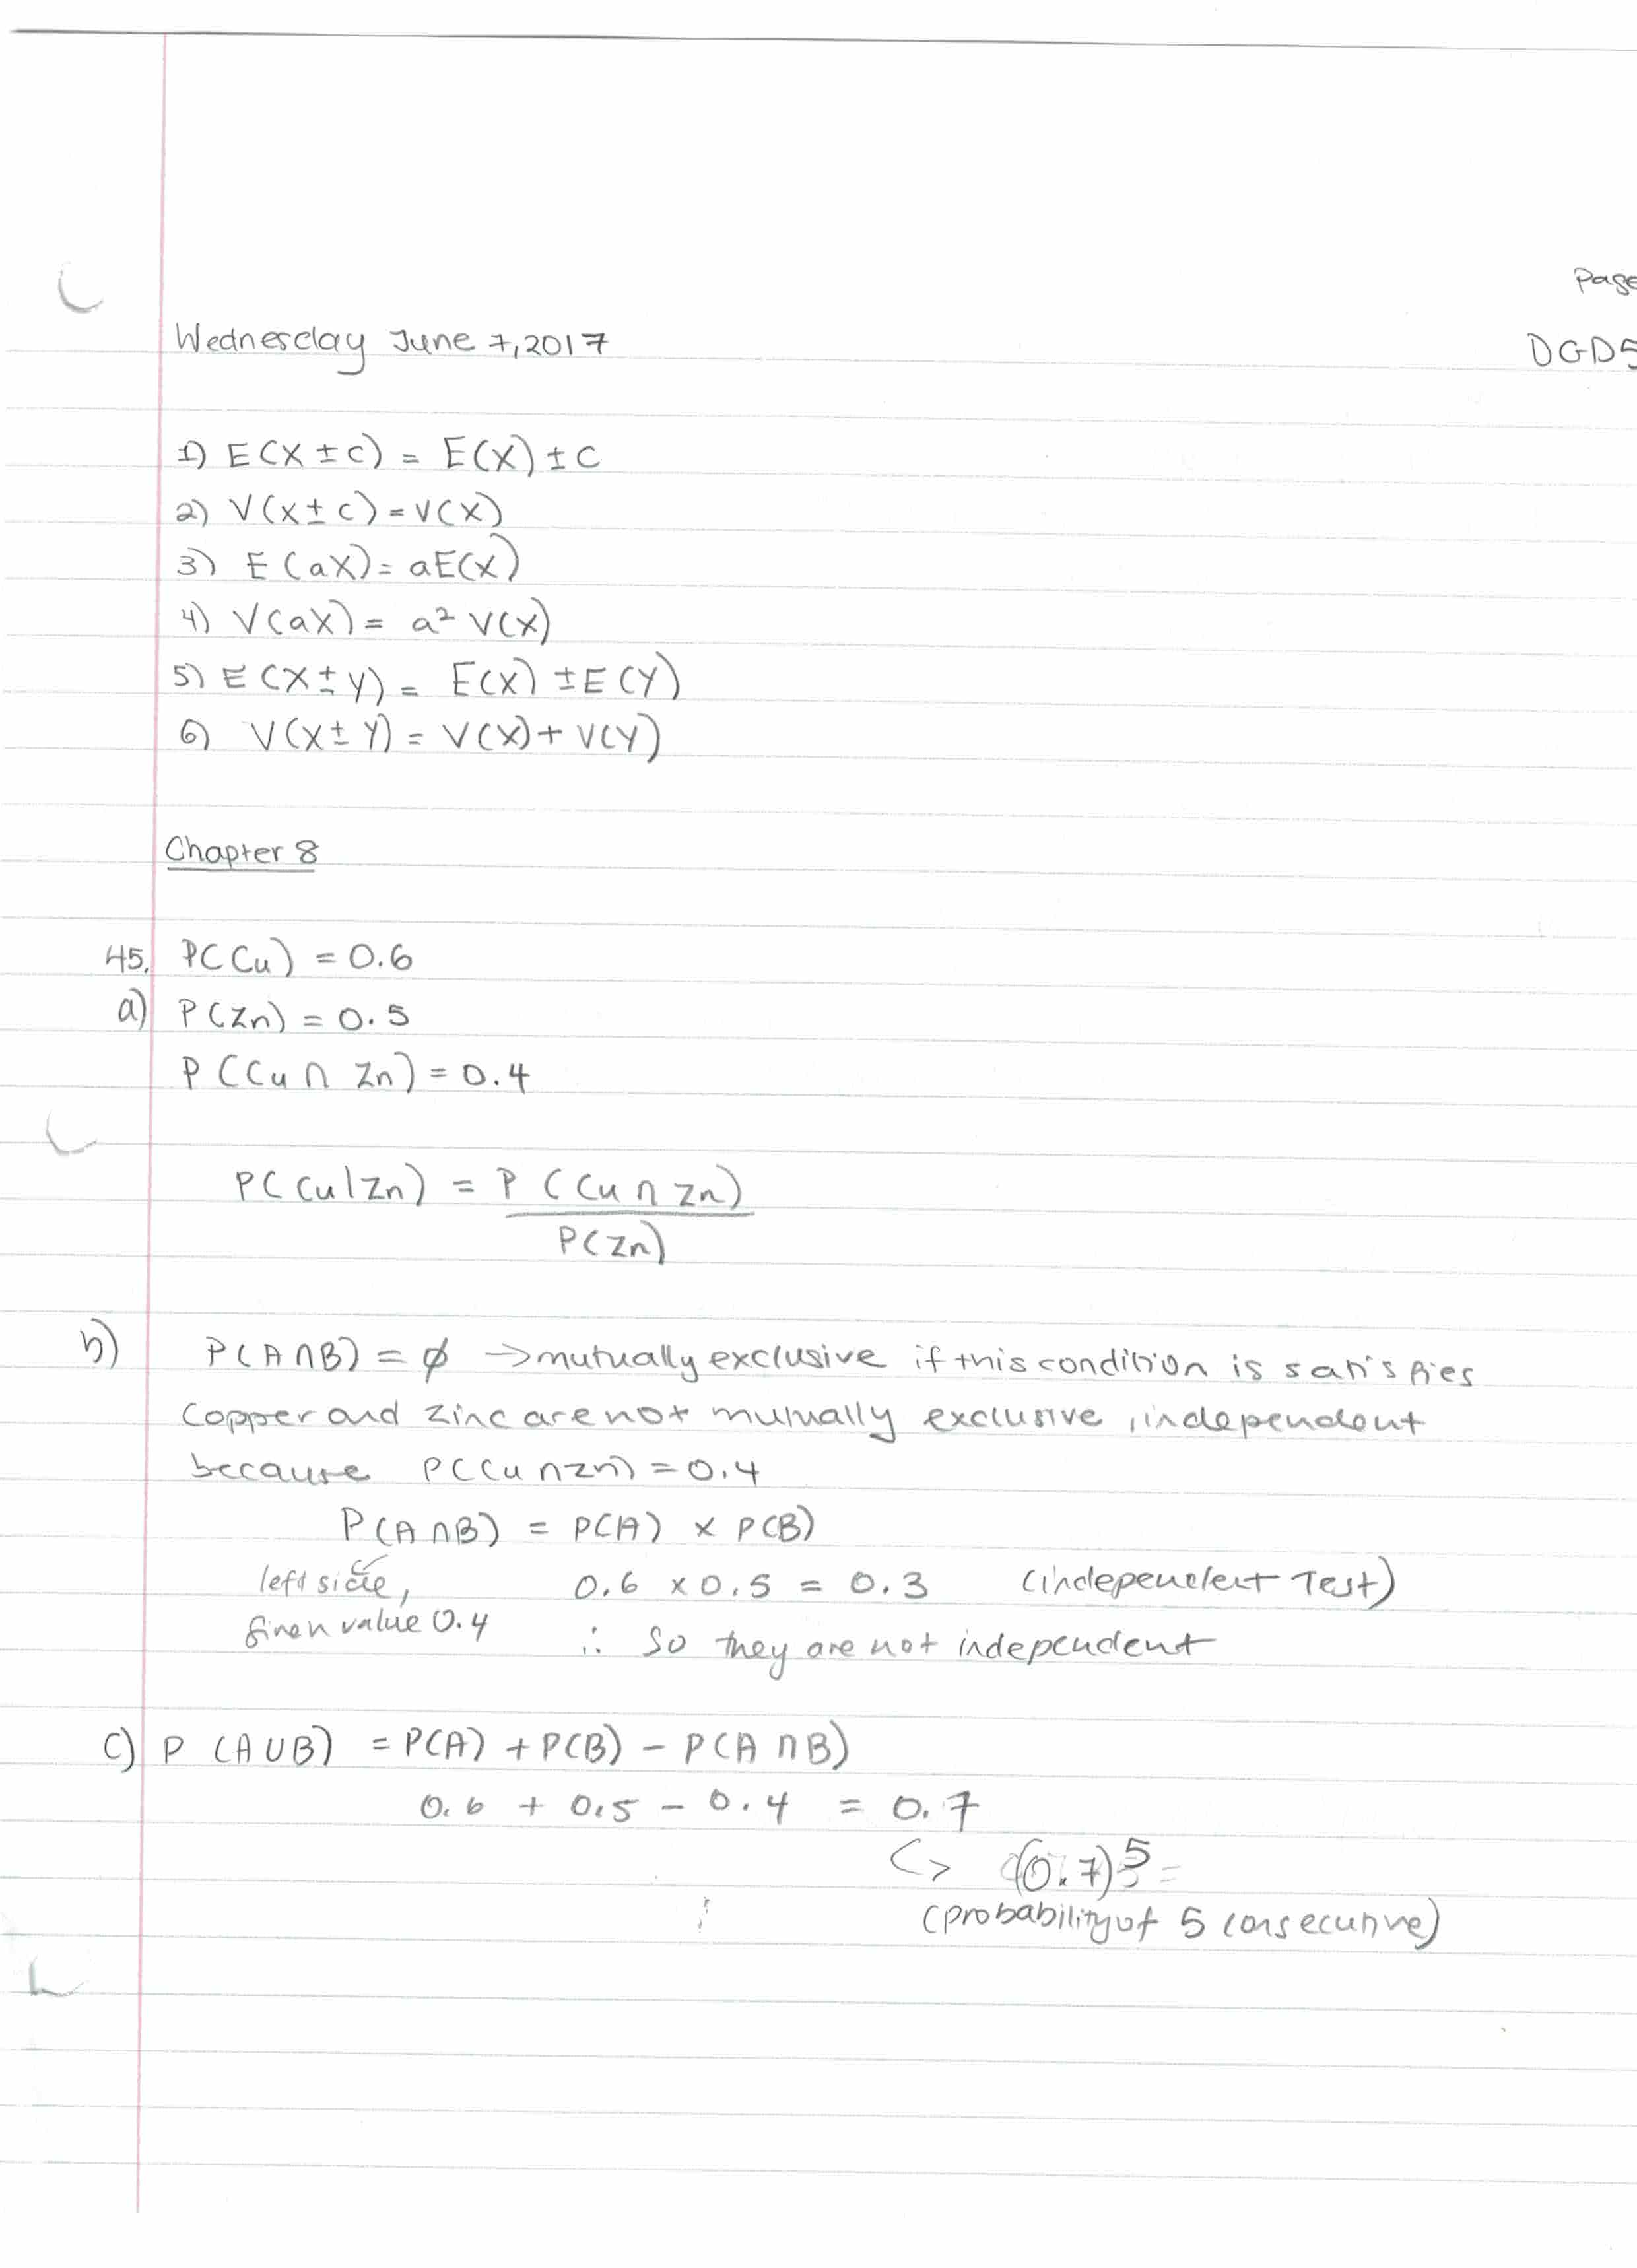 Page
Wednesday June 7, 2017
DGD5
1) E(X ± c) = E(X) ± c
2) V(X ± c) = V(X)
3) E(aX) = aE(X)
4) V(aX) = a² V(X)
5) E(X ± Y) = E(X) ± E(Y)
6) V(X ± Y) = V(X) + V(Y)
Chapter 8
45. P(Cu) = 0.6
a) P(Zn) = 0.5
P(Cu ∩ Zn) = 0.4
P(Cu|Zn) = P(Cu ∩ Zn)
P(Zn)
b) P(A ∩ B) = ϕ → mutually exclusive if this condition is satisfies
Copper and zinc are not mutually exclusive, independent
because P(Cu ∩ Zn) = 0.4
P(A ∩ B) = P(A) × P(B)
left side, 0.6 × 0.5 = 0.3 (independent Test)
given value 0.4 ∴ so they are not independent
c) P(A ∪ B) = P(A) + P(B) - P(A ∩ B)
0.6 + 0.5 - 0.4 = 0.7
(0.7)⁵ =
(probability of 5 consecutive)